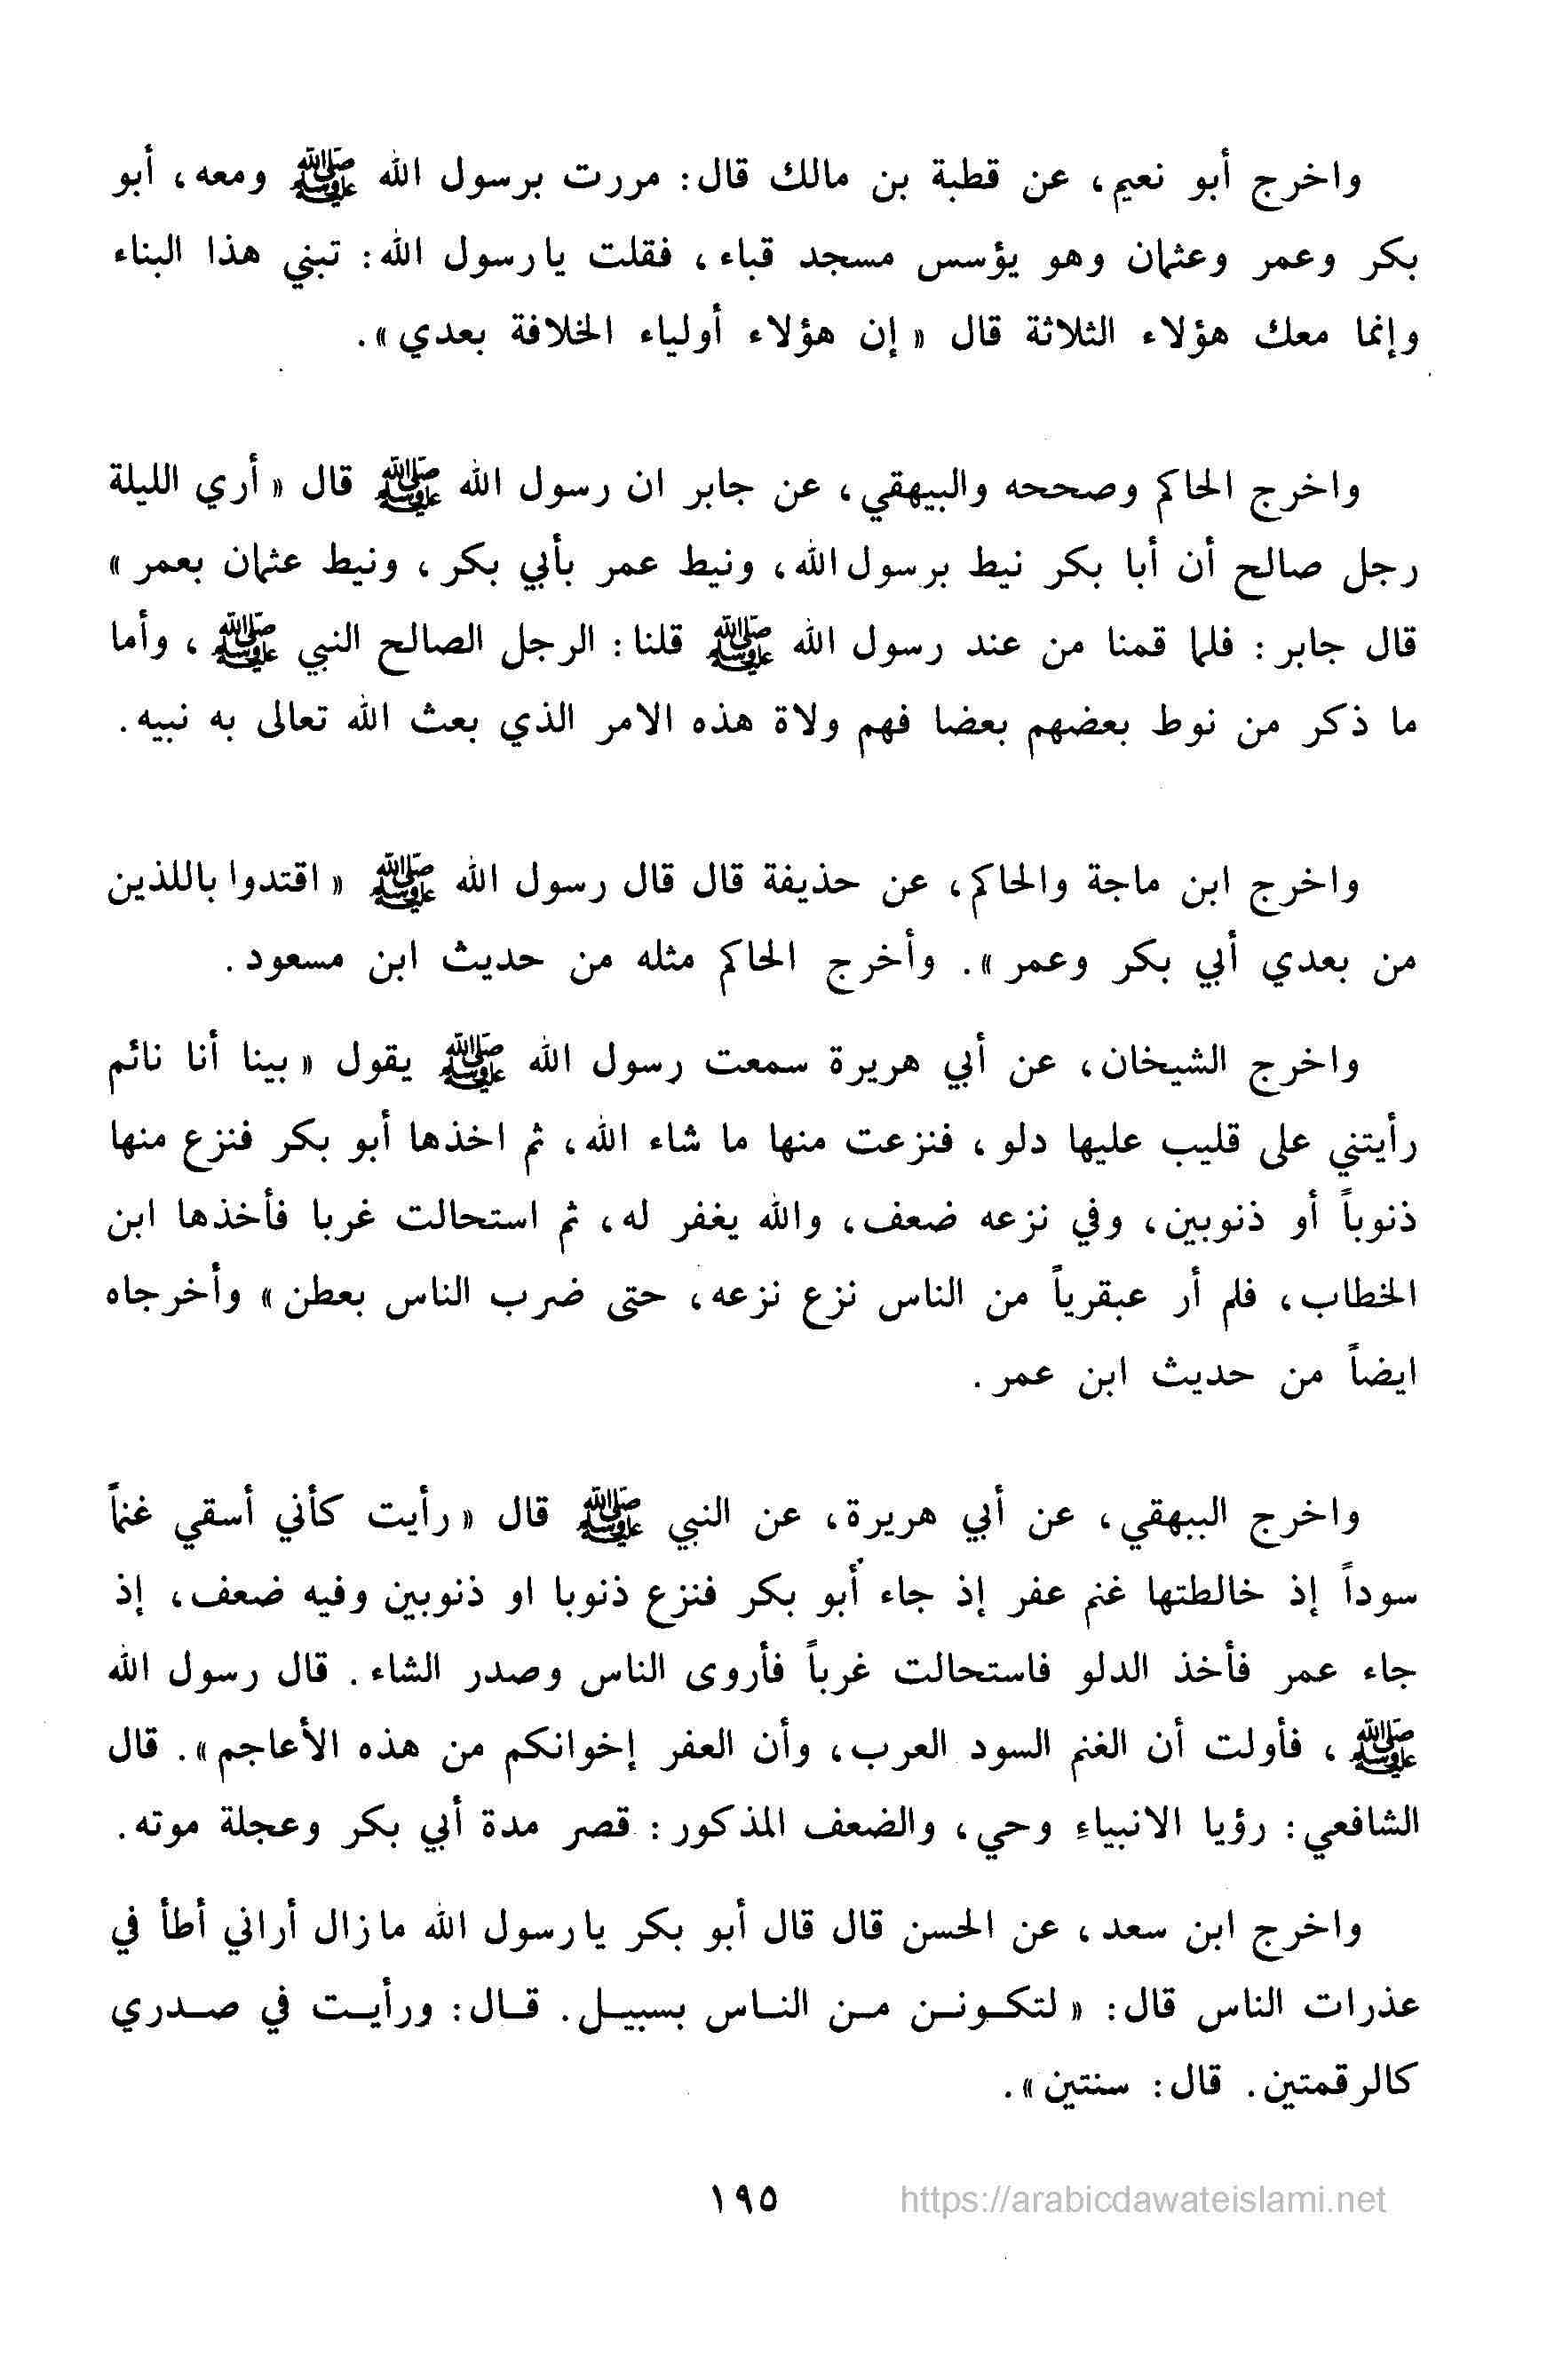 واخرج أبو نعيم، عن قطبة بن مالك قال: مررت برسول الله ﷺ ومعه، أبو
بكر وعمر وعثمان وهو يؤسس مسجد قباء، فقلت يارسول الله: تبني هذا البناء
وإنما معك هؤلاء الثلاثة قال « إن هؤلاء أولياء الخلافة بعدي ».
واخرج الحاكم وصححه والبيهقي، عن جابر ان رسول الله ﷺ قال « أري الليلة
رجل صالح أن أبا بكر نيط برسول الله، ونيط عمر بأبي بكر، ونيط عثمان بعمر »
قال جابر: فلما قمنا من عند رسول الله ﷺ قلنا: الرجل الصالح النبي ﷺ، وأما
ما ذكر من نوط بعضهم بعضا فهم ولاة هذه الامر الذي بعث الله تعالى به نبيه.
واخرج ابن ماجة والحاكم، عن حذيفة قال قال رسول الله ﷺ « اقتدوا باللذين
من بعدي أبي بكر وعمر ». وأخرج الحاكم مثله من حديث ابن مسعود.
واخرج الشيخان، عن أبي هريرة سمعت رسول الله ﷺ يقول « بينا أنا نائم
رأيتني على قليب عليها دلو، فنزعت منها ما شاء الله، ثم اخذها أبو بكر فنزع منها
ذنوباً أو ذنوبين، وفي نزعه ضعف، والله يغفر له، ثم استحالت غربا فأخذها ابن
الخطاب، فلم أر عبقرياً من الناس نزع نزعه، حتى ضرب الناس بعطن » وأخرجاه
ايضاً من حديث ابن عمر.
واخرج الببهقي، عن أبي هريرة، عن النبي ﷺ قال « رأيت كأني أسقي غنماً
سوداً إذ خالطتها غنم عفر إذ جاء أبو بكر فنزع ذنوبا او ذنوبين وفيه ضعف، إذ
جاء عمر فأخذ الدلو فاستحالت غرباً فأروى الناس وصدر الشاء. قال رسول الله
ﷺ، فأولت أن الغنم السود العرب، وأن العفر إخوانكم من هذه الأعاجم ». قال
الشافعي: رؤيا الانبياءِ وحي، والضعف المذكور: قصر مدة أبي بكر وعجلة موته.
واخرج ابن سعد، عن الحسن قال قال أبو بكر يارسول الله مازال أراني أطأ في
عذرات الناس قال: « لتكونن من الناس بسبيل. قال: ورأيت في صدري
كالرقمتين. قال: سنتين ».
١٩٥
https://arabicdawateislami.net